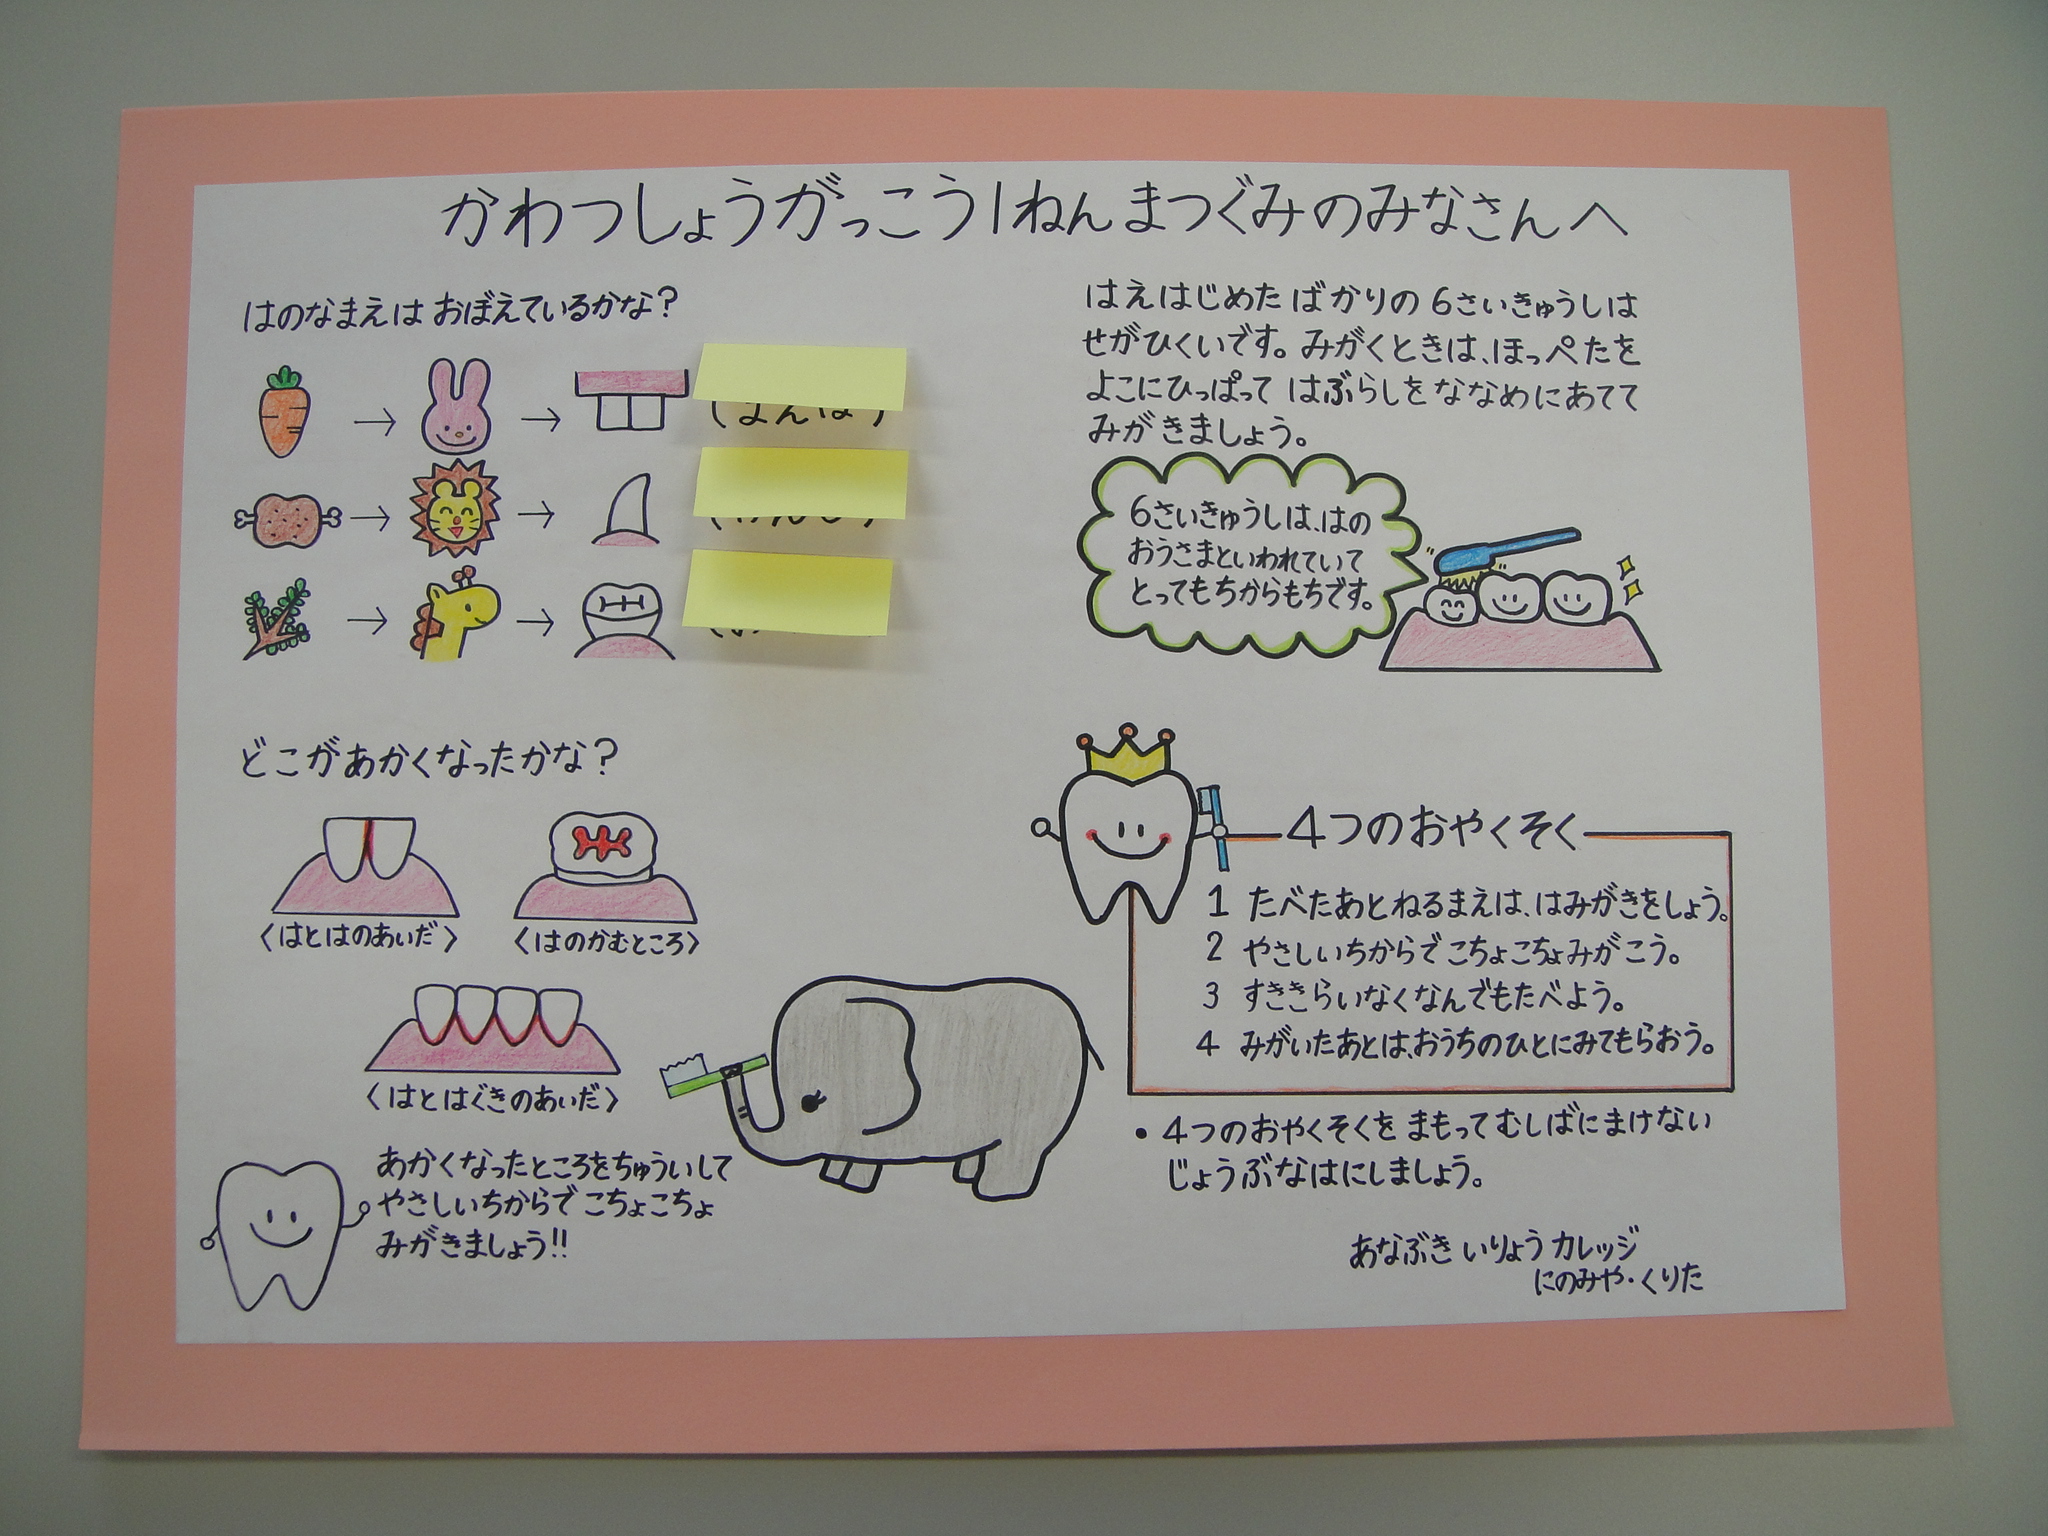 かわつしょうがっこう1ねんまつぐみのみなさんへ
はのなまえは おぼえているかな?
どこがあかくなったかな?
〈はとはのあいだ〉
〈はのかむところ〉
〈はとはぐきのあいだ〉
あかくなったところをちゅういして
やさしいちからでこちょこちょ
みがきましょう!!
はえはじめたばかりの6さいきゅうしは
せがひくいです。みがくときは、ほっぺたを
よこにひっぱって はぶらしをななめにあてて
みがきましょう。
6さいきゅうしは、はの
おうさまといわれていて
とってもちからもちです。
4つのおやくそく
1 たべたあとねるまえは、はみがきをしょう。
2 やさしいちからでこちょこちょみがこう。
3 すききらいなくなんでもたべよう。
4 みがいたあとは、おうちのひとにみてもらおう。
• 4つのおやくそくをまもってむしばにまけない
じょうぶなはにしましょう。
あなぶきいりょうカレッジ
にのみや・くりた